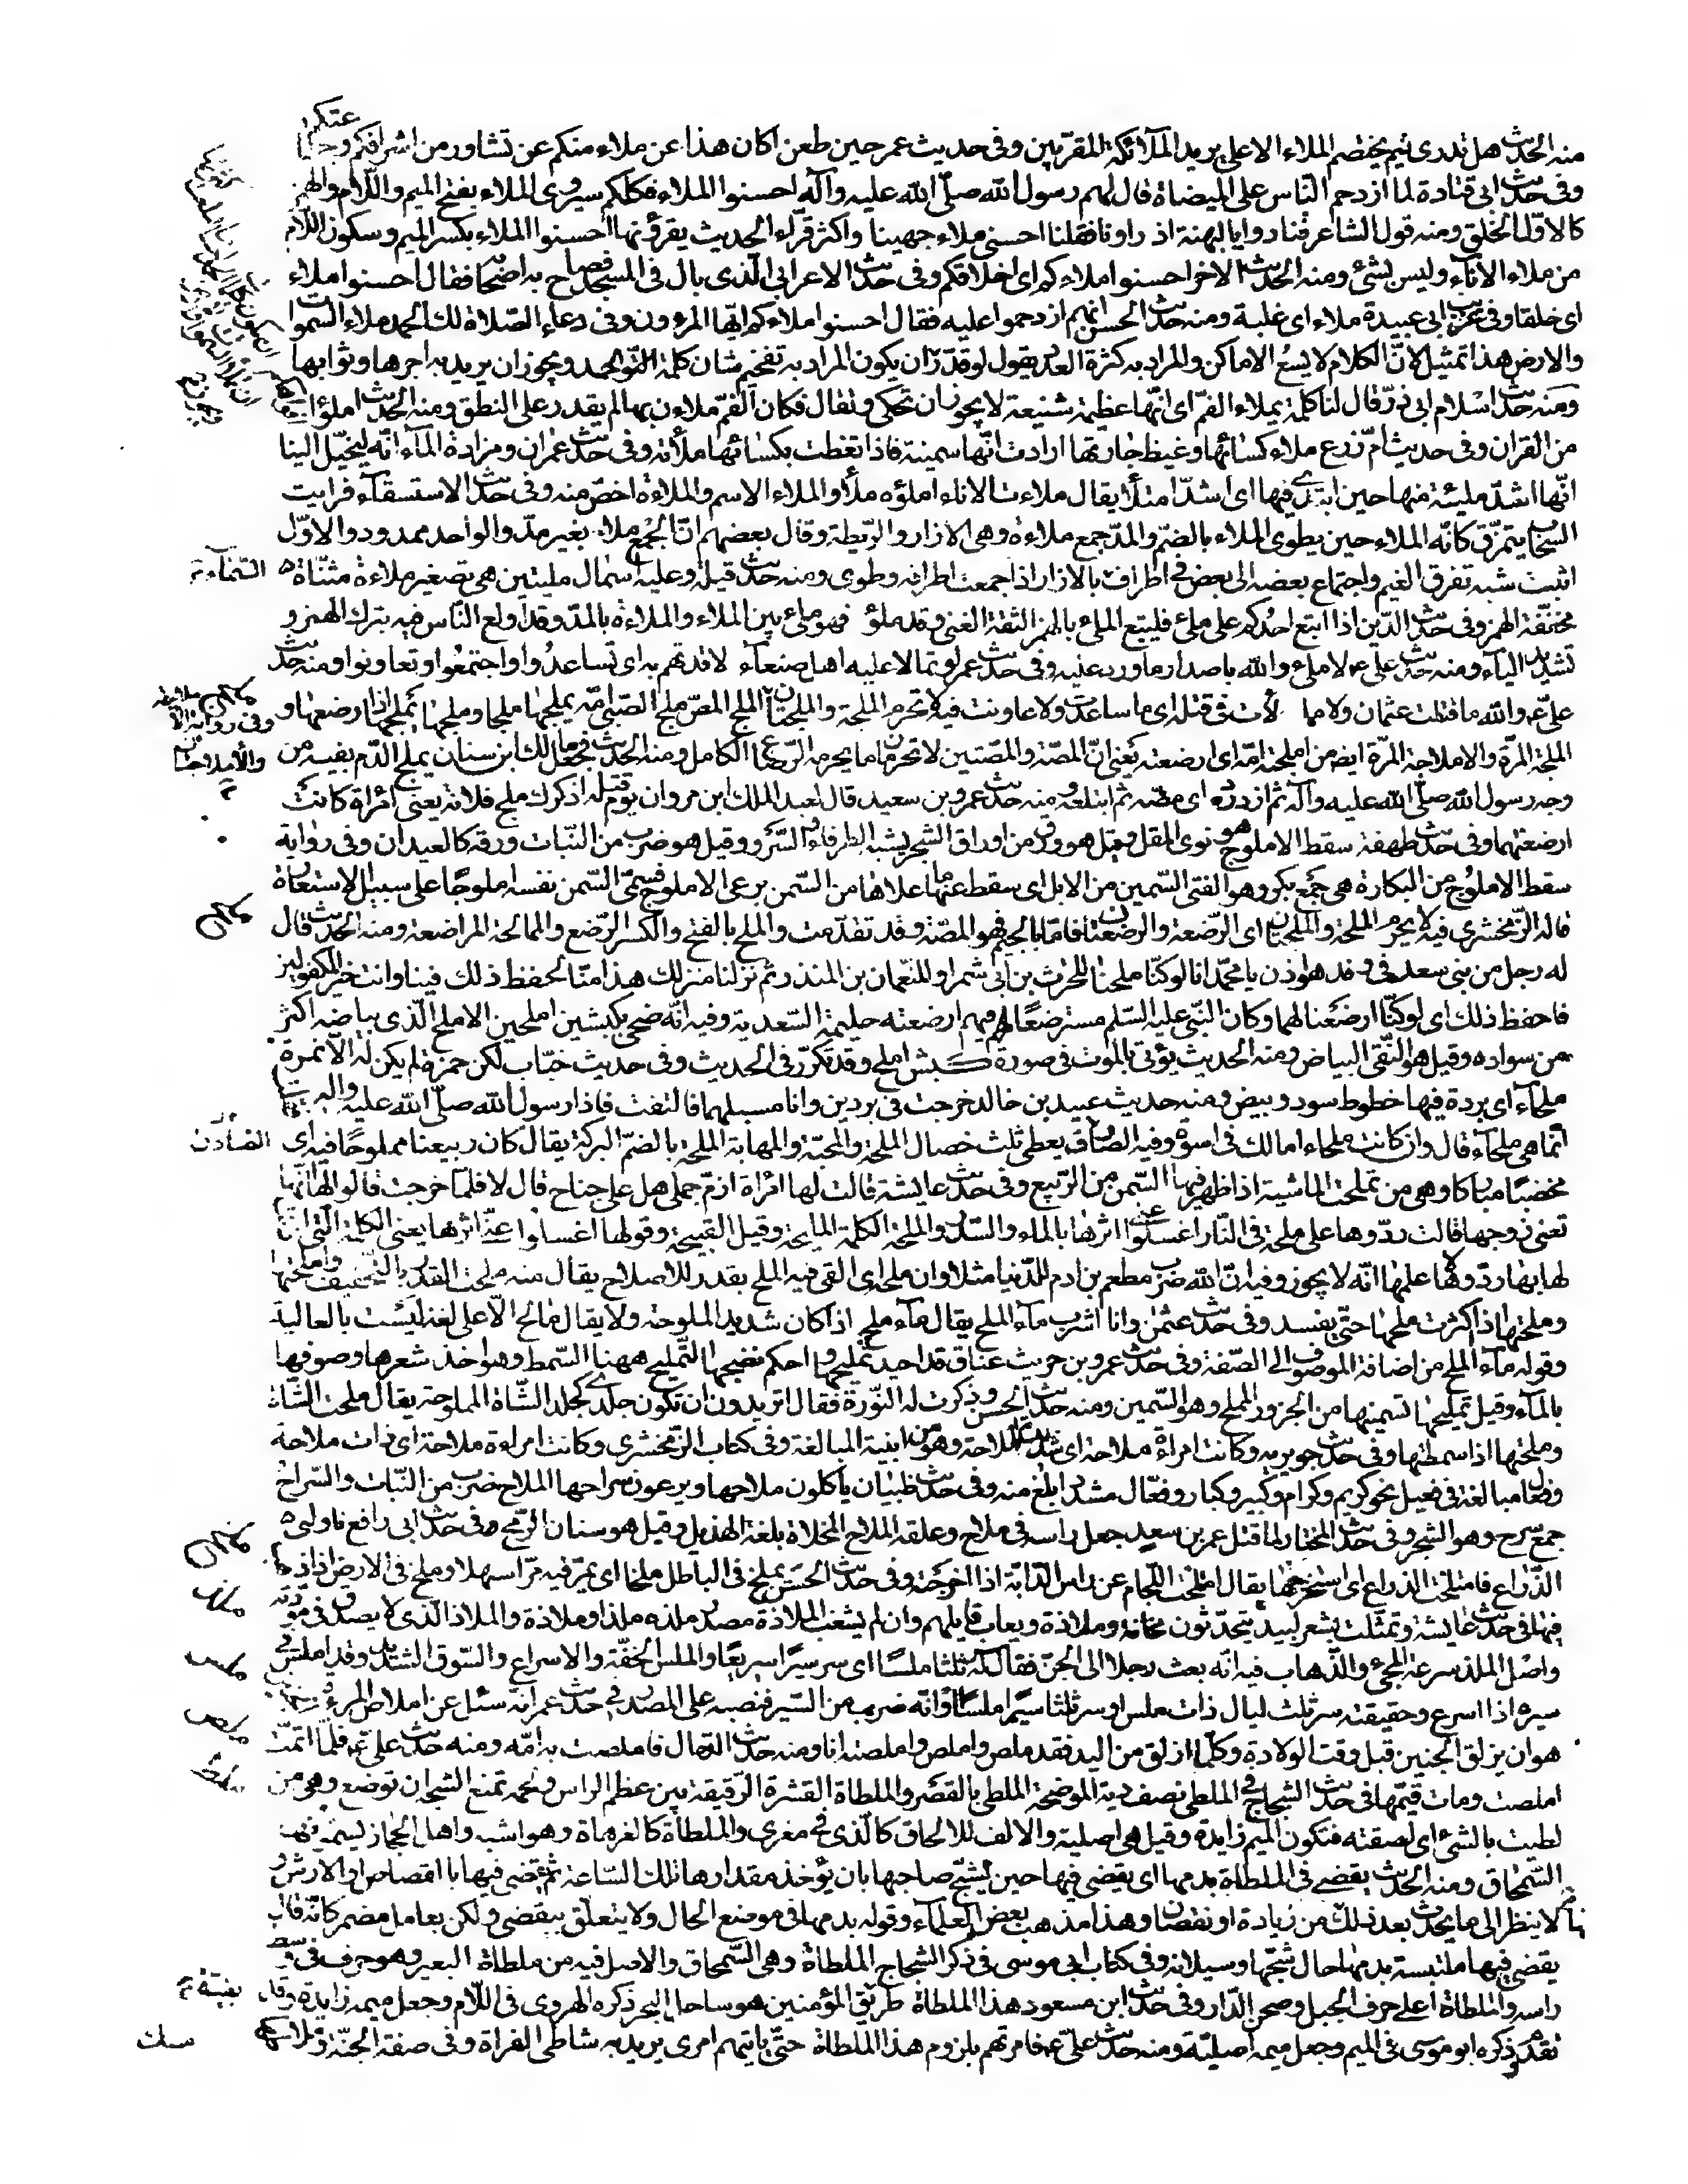 منه الحديث هل تدرى فيم يختصم الملاء الاعلى يريد الملآئكة المقرّبين وفى حديث عمر حين طعن اكان هذا عن ملاء منكم عن تشاور من اشرافكم وجماعتكم
وفى حديث ابى قتادة لما ازدحم النّاس على الميضاة قال لهم رسول الله صلّى الله عليه وآله احسنوا الملاء فكلكم سيروى الملاء بفتح الميم واللّام والهمز
كالاوّل الخلق ومنه قول الشاعر فنادوا يا لبهثة اذ راونا فقلنا احسنى ملاء جهينا واكثر قرّاء الحديث يقرؤنها احسنوا الملاء بكسر الميم وسكون اللّام
من ملاء الاناء وليس بشئ ومنه الحديث الاخر احسنوا املاءكم اى اخلاقكم وفى حديث الاعرابى الّذى بال فى المسجد فصاح به اصحابه فقال احسنوا املاء
اى خلقا وفى غريب ابى عبيدة ملاء اى غلبة ومنه حديث الحسن انّهم ازدحموا عليه فقال احسنوا املاءكم ايّها المرءون وفى دعاء الصّلاة لك الحمد ملاء السّموات
والارض هذا تمثيل لانّ الكلام لا يسع الاماكن والمراد به كثرة العدد يقول لو قدّر ان يكون المراد به تفخيم شان كلمة الحمد ويجوز ان يريد به اجرها وثوابها
ومنه حديث اسلام ابى ذرّ قال لنا كلمة بملاء الفمّ اى انّها عظيمة شنيعة لا يجوز ان تحكى وتقال فكان الفمّ ملاءن بها لم يقدر على النطق ومنه الحديث املؤا
من القران وفى حديث امّ زرع ملاء كسائها وغيظ جارتها ارادت انّها سمينة فاذا تغطت بكسائها ملأته وفى حديث عمران ومزادة المآء انّه ليخيّل الينا
انّها اشدّ ملئة منها حين ابتدئ فيها اى اشدّ امتلأ يقال ملاءت الاناء املؤه ملأ والملاء الاسم والملاءة اخصّ منه وفى حديث الاستسقآء فرايت
السّحاب يتمزّق كانّه الملاء حين يطوى الملاء بالضمّ والمدّ جمع ملاءة وهى الازار والرّيطة وقال بعضهم انّ الجمع ملاء بغير مدّ والواحد ممدود والاوّل
اثبت شبه تفرق الغيم واجتماع بعضه الى بعض فى اطراف السّمآء بالازار اذا جمعت اطرافه وطوى ومنه حديث قيلة وعليه اسمال مليتين هى تصغير ملاءة مثنّاة
مخفّفة الهمز وفى حديث الدّين اذا اتبع احدكم على ملئ فليتبع الملئ بالهمز الثقة الغنى وقد ملؤ فهو ملئ بين الملاء والملاءة بالمدّ وقد اولع النّاس فيه بترك الهمز و
تشديد اليآء ومنه حديث علىّ ع لا ملئ والله باصدار ما ورد عليه وفى حديث عمر لو تمالا عليه اهل صنعآء لاقدتهم به اى تساعدوا واجتمعوا وتعاونوا ومنه حديث
علىّ ع والله ما قتلت عثمان ولا مالأت فى قتله اى ما ساعدت ولا عاونت فيه لا تحرم الملجة والملجتان الملج المصّ ملج الصّبىّ امّه يملجها ملجا وملجها يملجها اذا رضعها و
الملجة المرّة والاملاجة المرّة ايض من املجته امّه اى ارضعته يعنى انّ المصّة والمصّتين لا تحرّمان ما يحرمه الرّضاع الكامل ومنه الحديث فجعل مالك ابن سنان يملج الدّم بفيه من
وجه رسول الله صلّى الله عليه وآله ثم ازدرده اى مصّه ثم ابتلعه ومنه حديث عمرو بن سعيد قال لعبد الملك ابن مروان يوم قتله اذكرك ملج فلانة يعنى امراة كانت
ارضعتهما وفى حديث طهفة سقط الاملوج هو نوى المقل وقيل هو ورق من اوراق الشجر يشبه الطرفاء والسّرو وقيل هو ضرب من النّبات ورقه كالعيدان وفى رواية
سقط الاملوج من البكارة هى جمع بكر وهو الفتى السّمين من الابل اى سقط عنها ما علاها من السّمن برعى الاملوج فسمّى السّمن نفسه املوجًا على سبيل الاستعارة
قاله الزّمخشرى فيه لا يحرم الملحة والملحتان اى الرّضعة والرضعتان فامّا بالجيم فهو المصّة وقد تقدّمت والملح بالفتح والكسر الرّضع والممالحة المراضعة ومنه الحديث قال
له رجل من بنى سعد فى وفد هوازن يا محمّد انا لو كنّا ملحنا للحارث بن ابى شمر او للنعمان بن المنذر ثم نزلنا منزلك هذا منّا لحفظ ذلك فينا وانت خير المكفولين
فاحفظ ذلك اى لو كنّا ارضعنا لهما وكان النّبىّ عليه السّلم مسترضعًا فيهم ارضعته حليمة السّعدية وفيه انّه ضحى بكبشين املحين الاملح الّذى بياضه اكثر
من سواده وقيل هو النّقى البياض ومنه الحديث يؤتى بالموت فى صورة كبش املح وقد تكرّر فى الحديث وفى حديث خبّاب لكن حمزة لم يكن له الا نمرة
ملحآء اى بردة فيها خطوط سود وبيض ومنه حديث عبيد بن خالد خرجت فى بردين وانا مسبلهما فالتفت فاذا رسول الله صلّى الله عليه واله
انّما هى ملحآء قال وان كانت ملحاء اما لك فى اسوة وفيه الصّادق يعطى ثلث خصال الملحة والمحبّة والمهابة الملحة بالضمّ البركة يقال كان ربيعنا مملوحًا فيه اى
مخصبًا مباركا وهى من تملحت الماشية اذا ظهر فيها السّمن من الرّبيع وفى حديث عايشة قالت لها امراة ازمّ جملى هل علىّ جناح قال لا فلمّا خرجت قالوا لها انّها
تعنى زوجها قالت ردّوها علىّ ملحة فى النّار اغسلوا عنّى اثرها بالماء والسّدر والملحة الكلمة المليحة وقيل القبيحة وقولها اغسلوا عنّى اثرها يعنى الكلمة الّتى اذنت
لها بها ردّوها لاعلمها انّه لا يجوز وفيه انّ الله ضرب مطعم بن ادم للدّنيا مثلا وان ملحه اى القى فيه الملح بقدر للاصلاح يقال منه ملحت القدر بالتّخفيف واملحتها
وملحتها اذا اكثرت ملحها حتّى يفسد وفى حديث عثمٰن وانا اشرب مآء الملح يقال مآء ملح اذا كان شديد الملوحة ولا يقال مالح الّا على لغة ليست بالعالية
وقوله مآء الملح من اضافة الموصوف الى الصّفة وفى حديث عمرو بن حريث عناق قد اجيد تمليحها واحكم نضجها التّمليح ههنا السّمط وهو اخذ شعرها وصوفها
بالمآء وقيل تمليحها تسمينها من الجزور المملح وهو السّمين ومنه حديث الحسن وذكرت له النّورة فقال اتريدون ان تكون جلدى كجلد الشّاة المملوحة يقال ملحت الشّاة
وملحتها اذا سمطتها وفى حديث جويريه وكانت امراةً ملاحة اى شديدة الملاحة وهو من ابنية المبالغة وفى كتاب الزّمخشرى وكانت امراءة ملاحة اى ذات ملاحة
وفعال مبالغة فى فعيل نحو كريم وكرام وكبير وكبار وفعّال مشدد ابلغ منه وفى حديث ظبيان ياكلون ملاحها ويرعون سراحها الملاح ضرب من النّبات والسّراح
جمع سرح وهو الشجر وفى حديث المختار لما قتل عمر بن سعد جعل راسه فى ملاح وعلقه الملاح المخلاة بلغة الهذيل وقيل هو سنان الرّمح وفى حديث ابى رافع ناولنى
الذّراع فامتلخت الذراع اى استخرجتها يقال امتلخت اللّجام عن راس الدّابّة اذا اخرجته وفى حديث الحسن يملخ فى الباطل ملخا اى يمرّ فيه مرّا سهلا وملخ فى الارض اذا ذهب
فيها فى حديث عايشة وتمثّلت بشعر لبيد يتحدّثون مخانة وملاذة ويعاب قايلهم وان لم يشغب الملاذة مصدر ملذه ملذا وملاذة والملاذ الّذى لا يصدق فى مودّته
واصل الملذ سرعة المجئ والذّهاب فيه انّه بعث رجلا الى الجنّ فقال له سر ثلثا ملسًا اى سر سيرًا سريعًا والملس الخفّة والاسراع والسّوق الشّديد وقد املس فى
سيره اذا اسرع وحقيقته سر ثلث ليال ذات ملس او سر ثلثا سيرًا ملسًا او انّه ضرب من السّير فنصبه على المصدر فى حديث عمر انّه سئل عن املاص المرءة الجنين
هو ان يزلق الجنين قبل وقت الولادة وكلّما ازلق من اليد فقد ملص واملص واملصته انا ومنه حديث الدّجّال فاملصت به امّه ومنه حديث علىّ ع فلمّا اتمّت
املصت ومات قيّمها فى حديث الشجاج فى الملطى نصف دية الموضحة الملطى بالقصر والملطاة القشرة الرّقيقة بين عظم الراس ولحمه تمنع الشجه ان توضع وهى من
لطيت بالشئ اى لصقته فتكون الميم زايدة وقيل هى اصلية والالف للالحاق كالّذى فى معزى والملطاة كالعزهاة وهو اشبه واهل الحجاز يسمّونها
السّمحاق ومنه الحديث يقضى فى الملطاة بدمها اى يقضى فيها حين يشجّ صاحبها بان يؤخذ مقدارها تلك السّاعة ثمّ يقضى فيها بالقصاص او الارش و
لا ينظر الى ما يحدث بعد ذلك من زيادة او نقصان وهذا مذهب بعض العلمآء وقوله بدمها فى موضع الحال ولا يتعلّق بيقضى ولكن بعامل مضمر كانّه قال
يقضى فيها ملتبسة بدمها حال شجّها وسيلانه وفى كتاب ابى موسى فى ذكر الشجاج الملطاة وهى السّمحاق والاصل فيه من ملطاة البعير وهو حرف فى وسط
راسه والملطاة اعلى حرف الجبل وصحن الدّار وفى حديث ابن مسعود هذا الملطاة طريق بقيّة المؤمنين هو ساحل البحر ذكره الهروى فى اللّام وجعل ميمه زايدة وقد
تقدّم وذكره ابو موسى فى الميم وجعل ميمه اصليّة ومنه حديث علىّ ع فامرتهم بلزوم هذا الملطاة حتّى ياتيهم امرى يريد به شاطى الفراة وفى صفة الجنّة وملاطها